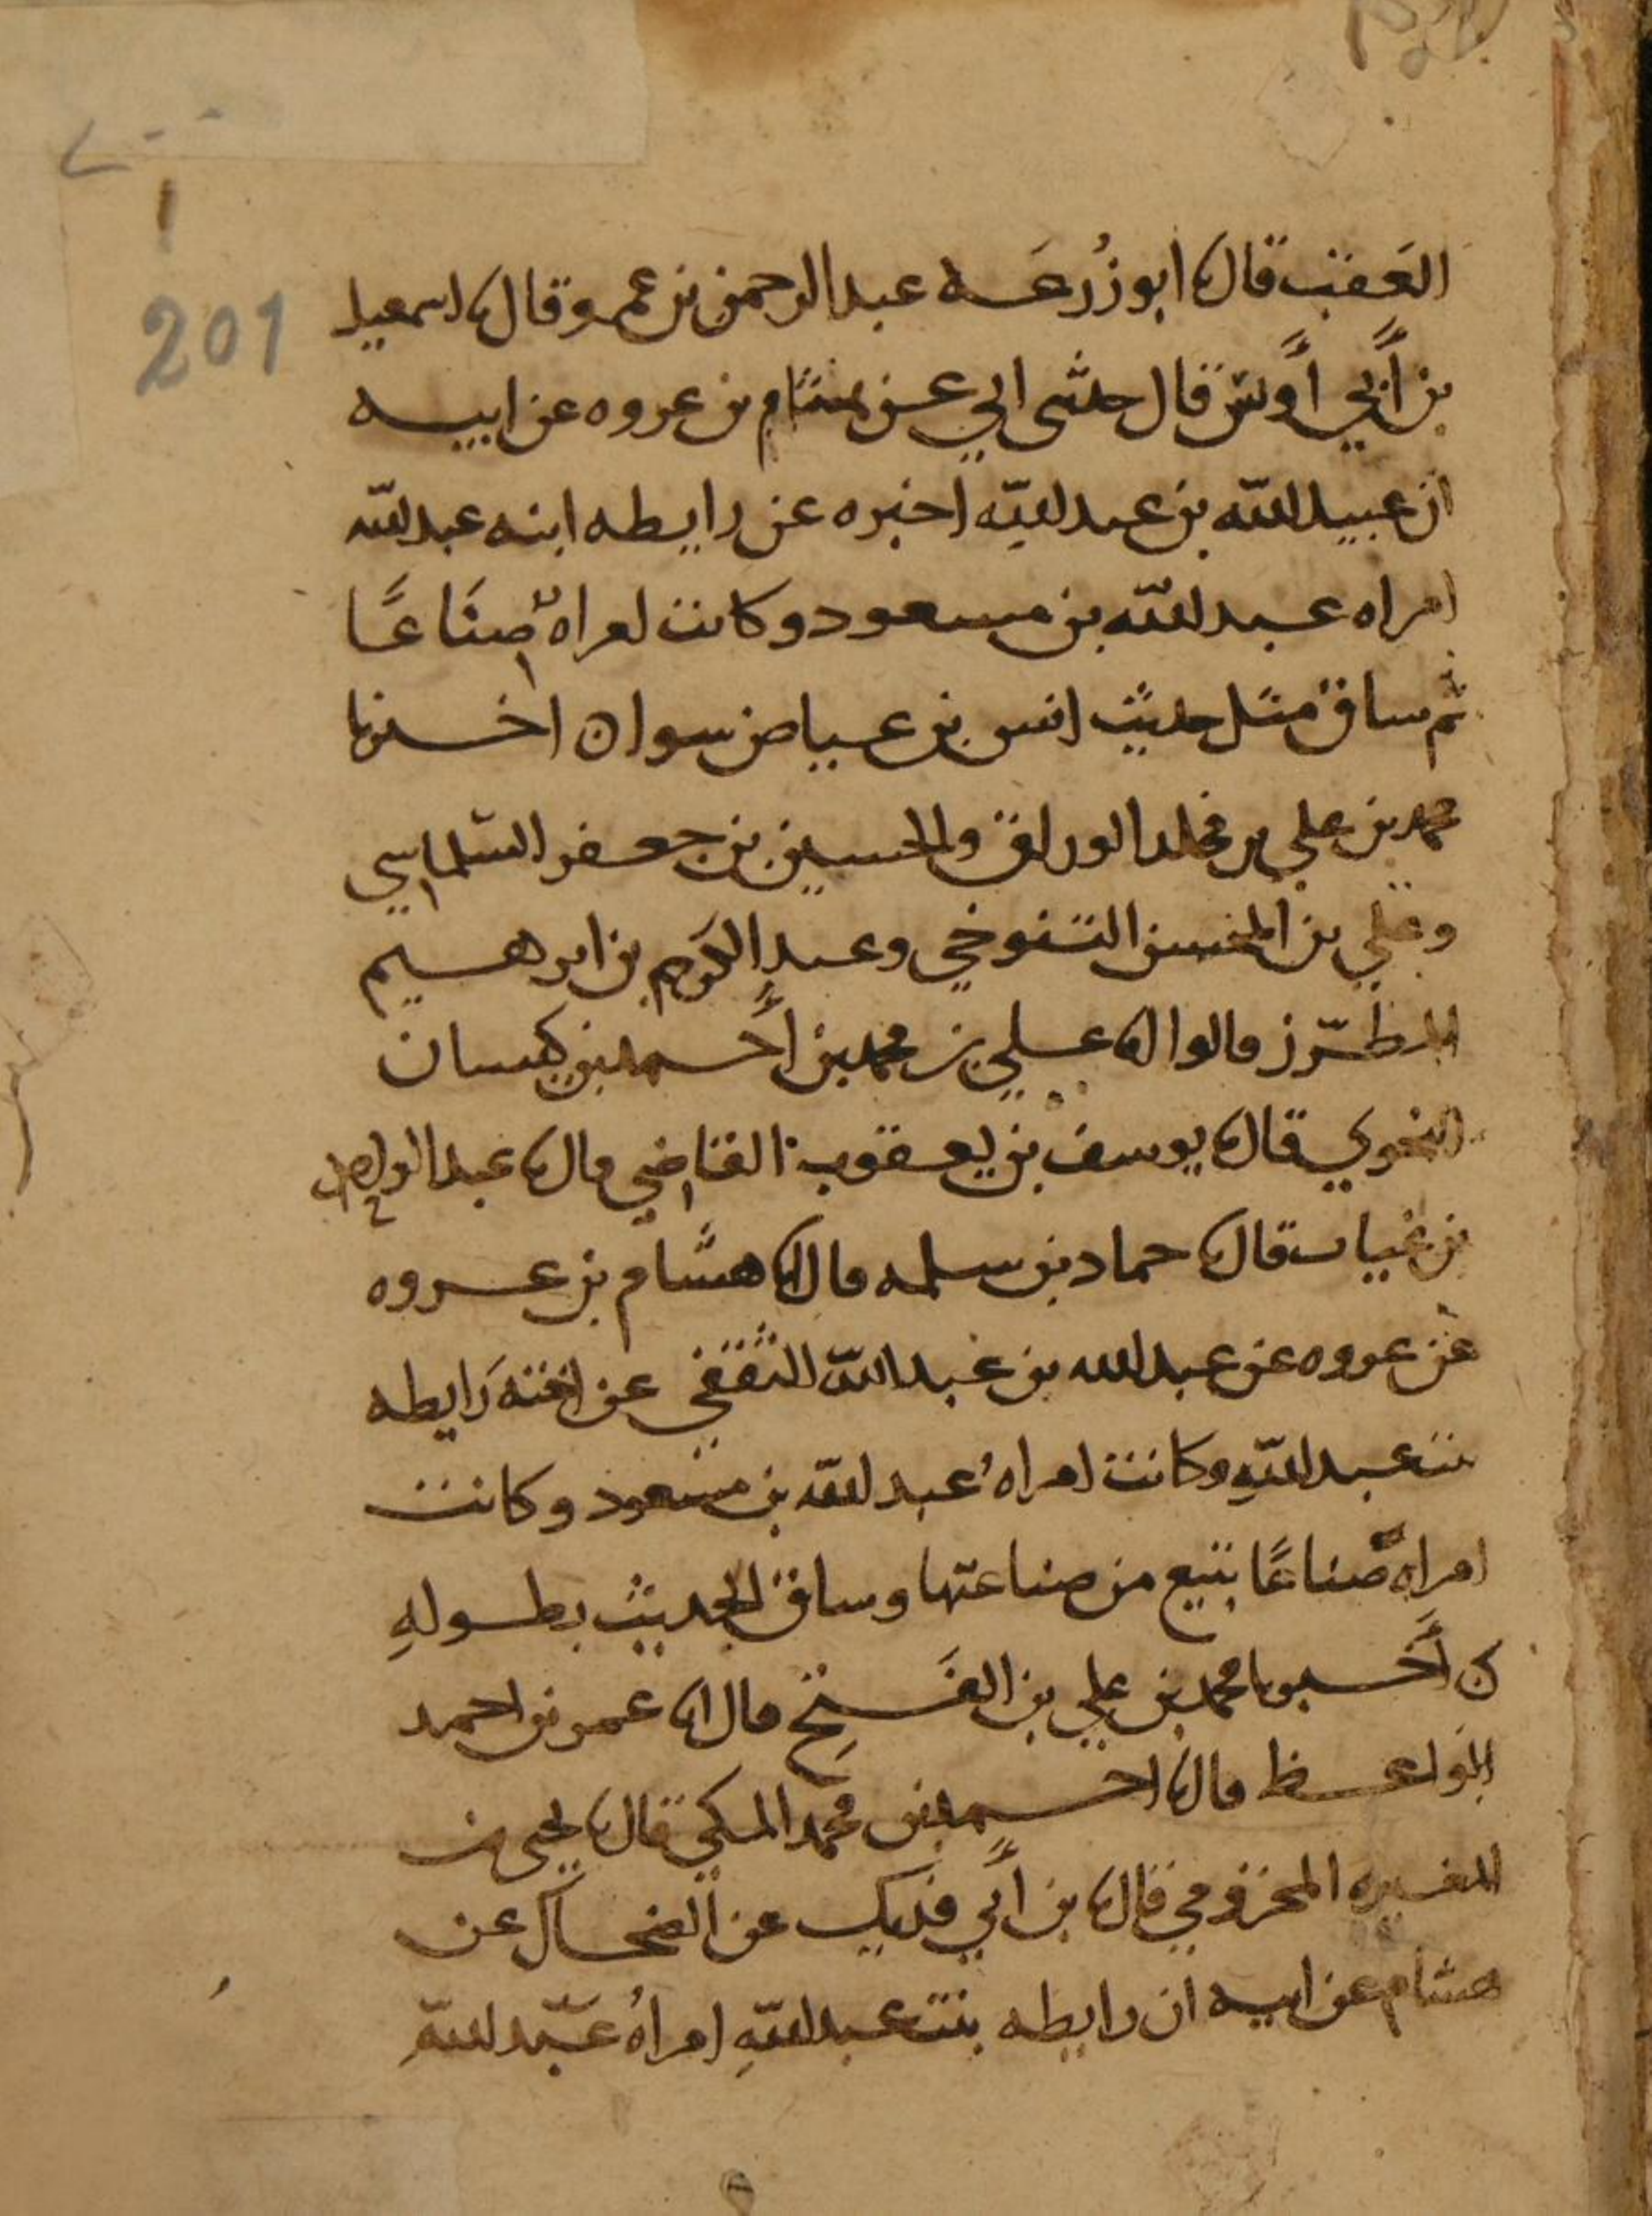 201
العقب قال نا ابو زُرعَه عبد الرحمن بن عمرو قال نا اسمعيل
بن أَبي أُويس قال حدثني ابي عن هشام بن عروه عن ابيه
ان عبيد الله بن عبد الله اخبره عن رايطه ابنه عبد الله
امراه عبد الله بن مسعود وكانت امراه صنَاعًا
ثم ساق مثل حديث انس بن عياض سوا ن اخبرنا
محمد بن علي بن مخلد الوراق والحسين بن جعفر السلماسي
وعلي بن المحسن التنوخي وعبد الكريم بن ابرهيم
المطرّز قالوا انا علي بن محمد بن أَحمد بن كيسان
النحوي قال نا يوسف بن يعقوب القاضي قال نا عبد الواحد
بن غياث قال نا حماد بن سلمه قال انا هشام بن عروه
عن عروه عن عبد الله بن عبد الله الثقفي عن اخته رَايطه
بنت عبد اللهِ وكانت امراهُ عبد الله بن مسعود وكانت
امراهً صناعًا تبيع من صناعتها وساق الحديث بطولهِ
ن أَخبرنا محمد بن علي بن الفَتحِ قال انا عمر بن احمد
الواعظ قال نا احمد بن محمد المكي قال نا يحيى بن
المغيره المخزومي قال نا بن أَبي فديك عن الضحاك عن
هشام عن ابيه ان رايطه بنت عبد اللهِ امراهُ عبد اللهِ